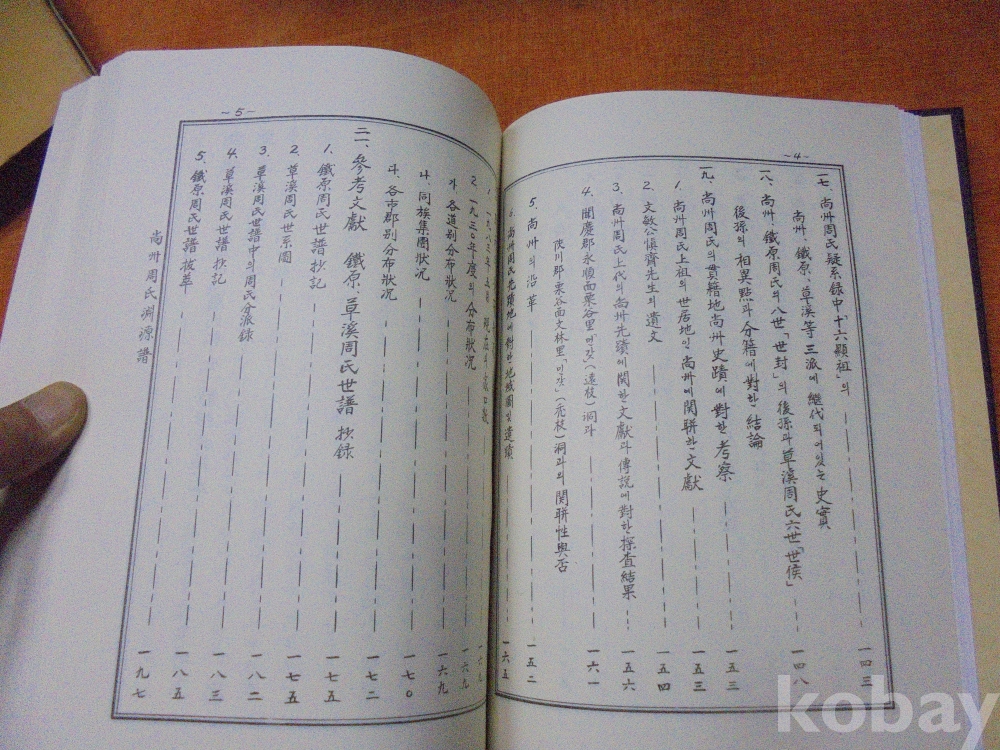 ~4~
一七、尙州周氏疑系録中「十六顯祖」의
尙州、鐵原、草溪等 三派에 継代되어있는 史實 一四三
一八、尙州、鐵原周氏의 八世「世封」의 後孫과 草溪周氏 六世「世侯」
後孫의 相異點과 分籍에 對한 結論 一四八
一九、尙州周氏의 貫籍地 尙州史蹟에 對한 考察 一五三
1. 尙州周氏上祖의 世居地인 尙州에 関聯한 文獻 一五三
2. 文敏公愼齊先生의 遺文 一五四
3. 尙州周氏上代의 尙州先蹟에 関한 文獻과 傳說에 對한 探査結果 一五六
4. 聞慶郡永順面栗谷里 洞과 一六一
川郡栗谷面文林里 洞과의 関聯性與否
5. 尙州의 沿革 一五二
6. 尙州周氏先蹟地에 對한 地域圖 및 遺績 一六五
~5~
2. 一九三〇年度의 分布狀况 一六九
가. 各道别分布狀况 一六九
나. 同族集團狀况 一七〇
다. 各市郡别分布狀况 一七二
二一、參考文獻 鐵原、草溪周氏世譜 抄録 一七五
1. 鐵原周氏世譜抄記 一七五
2. 草溪周氏世系圖 一八二
3. 草溪周氏世譜中의 周氏分派録 一八三
4. 草溪周氏世譜 抄記 一八五
5. 鐵原周氏世譜 拔萃 一九七
尙州周氏淵源譜
kobay